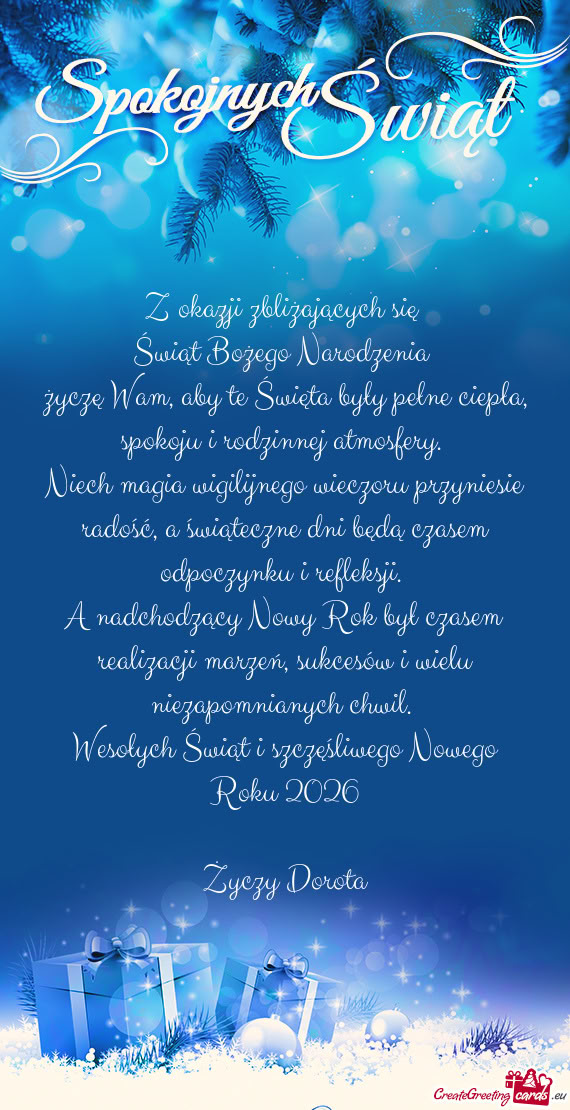 Spokojnych Świąt
Z okazji zbliżających się
Świąt Bożego Narodzenia
życzę Wam, aby te Święta były pełne ciepła,
spokoju i rodzinnej atmosfery.
Niech magia wigilijnego wieczoru przyniesie
radość, a świąteczne dni będą czasem
odpoczynku i refleksji.
A nadchodzący Nowy Rok był czasem
realizacji marzeń, sukcesów i wielu
niezapomnianych chwil.
Wesołych Świąt i szczęśliwego Nowego
Roku 2026
Życzy Dorota
CreateGreeting cards .eu